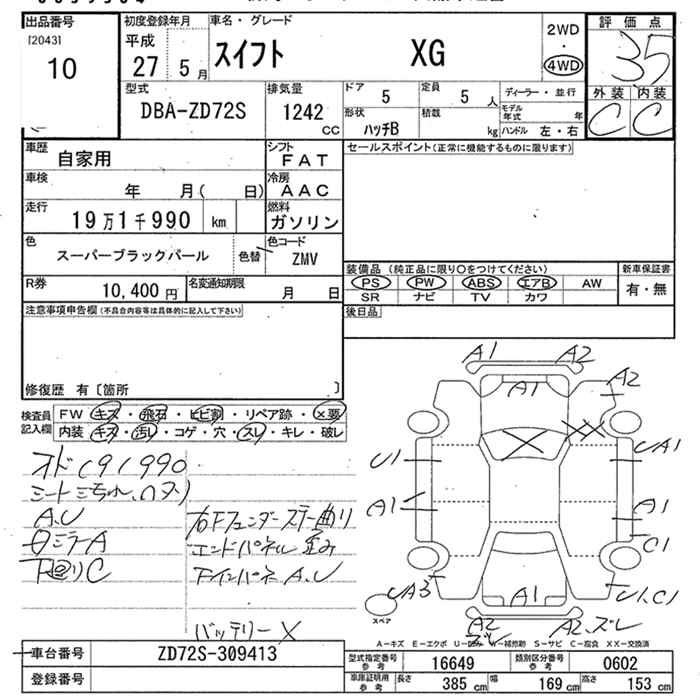 出品番号 初度登録年月 車名・グレード 2WD 評価点
[2043] 平成 スイフト XG ・ 35
10 27 5月 4WD 外装 内装
C C
型式 排気量 ドア 5 定員 5人 ディーラー・並行
DBA-ZD72S 1242 cc 形状 ハッチB 積載 kg モデル年式 年
ハンドル 左・右
車歴 自家用 シフト FAT セールスポイント(正常に機能するものに限ります)
車検 年 月( 日) 冷房 AAC
走行 19万1千990 km 燃料 ガソリン
色 スーパーブラックパール 色替 色コード ZMV
装備品 (純正品に限り○をつけてください) 新車保証書
PS PW ABS エアB AW 有・無
SR ナビ TV カワ
R券 10,400円 名変通知期限 月 日
後日品
注意事項申告欄(不具合内容等は具体的に記入して下さい)
修復歴 有〔箇所 〕
検査員記入欄 FW キズ・飛石・ヒビ割・リペア跡・×要
内装 キズ・汚レ・コゲ・穴・スレ・キレ・破レ
オド191990
A.U
ミラーA
下回りC
右Fフェンダーステー曲り
エンドパネル歪み
FインパネA.U
バッテリーX
A1 A2
A1 A2
XX
U1 UA1
A1 A1
C1
UA3 A1 U1.C1
A2 ズレ A2.ズレ
スペア
A−キズ E−エクボ U−凹み W−補修跡 S−サビ C−腐食 XX−交換済
車台番号 ZD72S-309413
登録番号
型式指定番号 参考 16649 類別区分番号 参考 0602
車庫証明用 参考 長さ 385 cm 幅 169 cm 高さ 153 cm